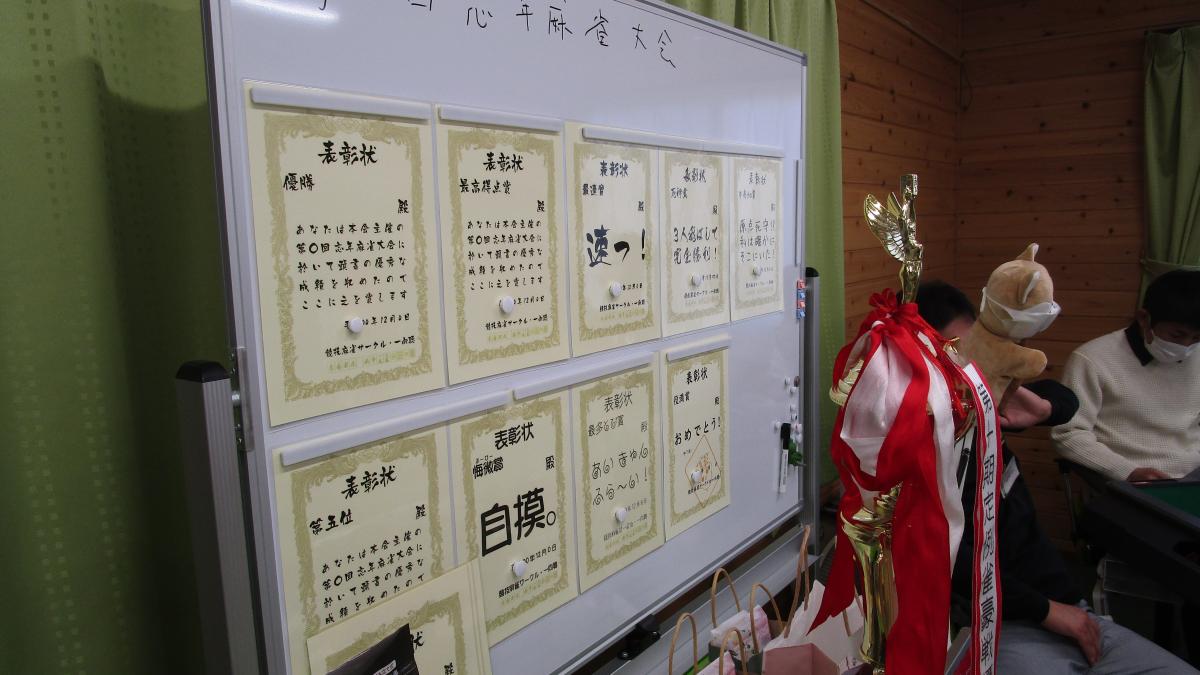 忘年麻雀大会
表彰状
優勝
殿
あなたは本会主催の
第〇回忘年麻雀大会に
於いて頭書の優秀な
成績を収めたので
ここに之を賞します
年12月0日
競技麻雀サークル・一向聴
表彰状
最高得点賞
殿
あなたは本会主催の
第〇回忘年麻雀大会に
於いて頭書の優秀な
成績を収めたので
ここに之を賞します
年12月0日
競技麻雀サークル・一向聴
表彰状
殿
速っ!
表彰状
殿
3人飛ばして
完全勝利!
表彰状
殿
原点死守!!
私は確かに
そこにいた!
表彰状
第五位
殿
あなたは本会主催の
第〇回忘年麻雀大会に
於いて頭書の優秀な
成績を収めたので
表彰状
殿
自摸。
年12月0日
競技麻雀サークル・一向聴
表彰状
最多とび賞
殿
あいきゃん
ふら〜い!
表彰状
役満賞
殿
おめでとう!
状
殿
十期定例雀豪戦